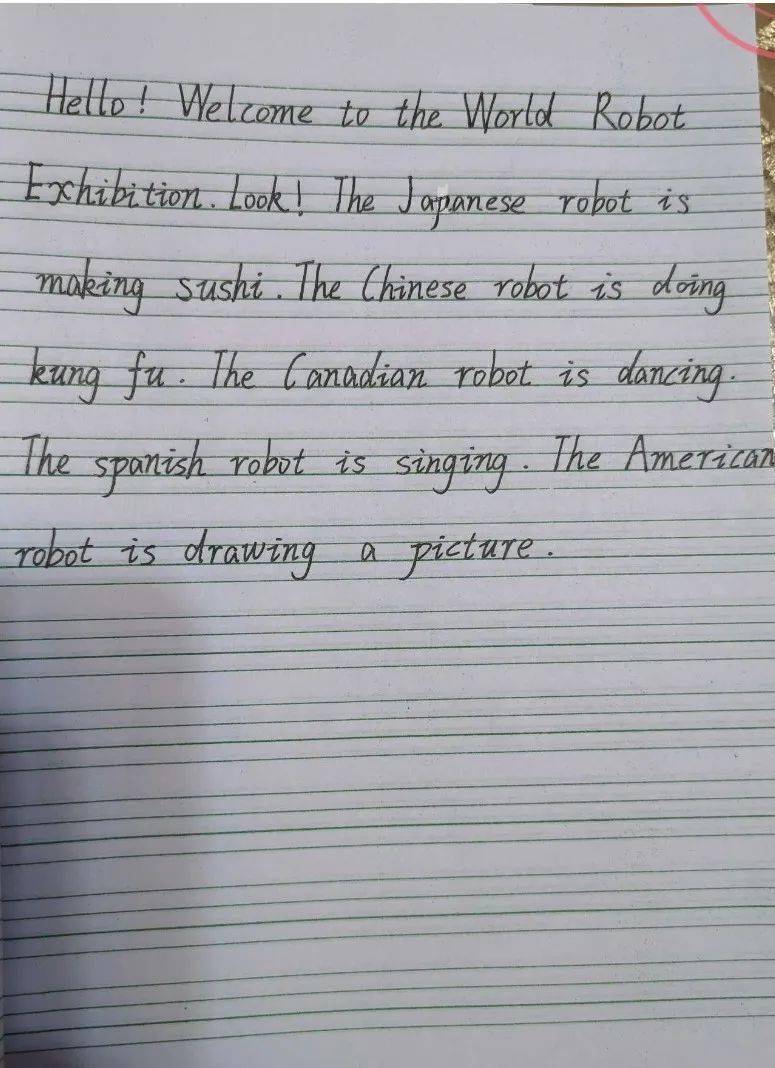 Hello! Welcome to the World Robot
Exhibition. Look! The Japanese robot is
making sushi. The Chinese robot is doing
kung fu. The Canadian robot is dancing.
The spanish robot is singing. The American
robot is drawing a picture.